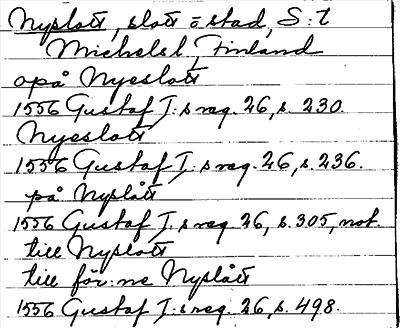 Nyslott, slott o stad, S:t
Michels l, Finland
opå Nyeslott
1556 Gustaf I:s reg. 26, s. 230.
Nyeslott
1556 Gustaf I:s reg. 26, s. 236.
på Nyslått
1556 Gustaf I:s reg. 26, s. 305, not.
till Nyslott
till för:ne Nyslått
1556 Gustaf I:s reg. 26, s. 498.